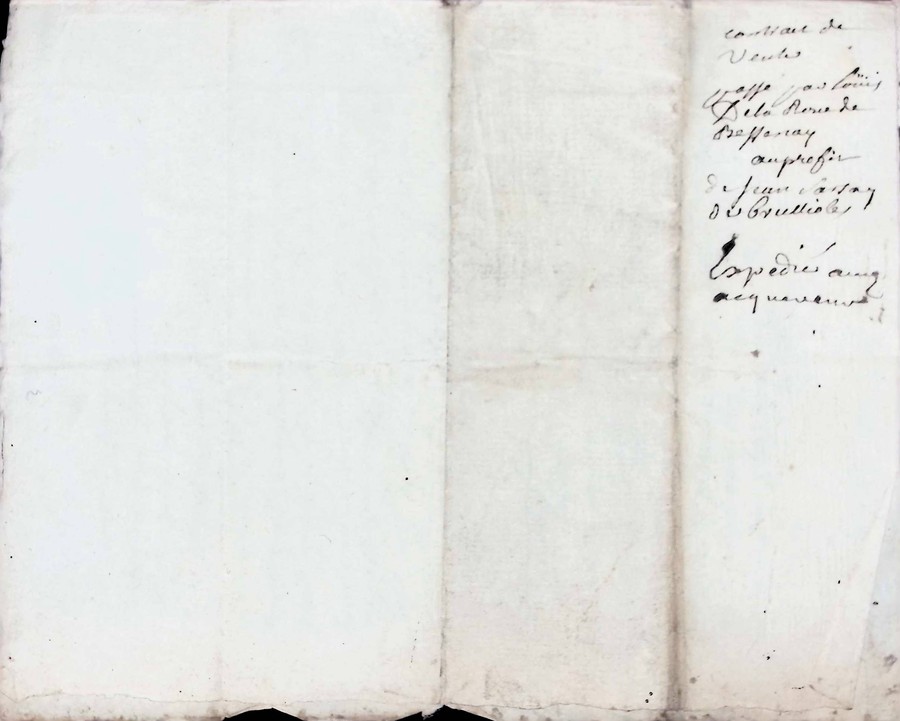 contract de
Vente
passé par Loüis
De la Roue de
Bessenay
au profit
de Jean
De Brullioles
Expedié aud
acquereur